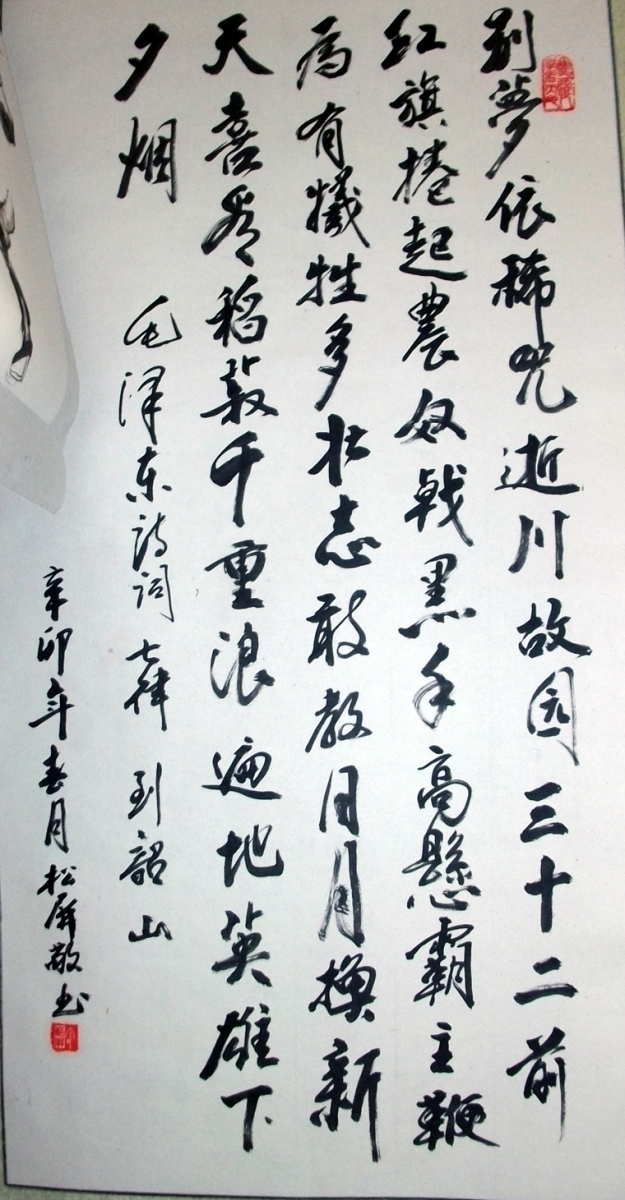 别夢依稀咒逝川故园三十二前
红旗捲起農奴戟黑手高懸霸主鞭
為有犧牲多壮志敢教日月换新
天喜看稻菽千重浪遍地英雄下
夕烟 毛泽东詩词 七律 到韶山
辛卯年春月松屏敬书